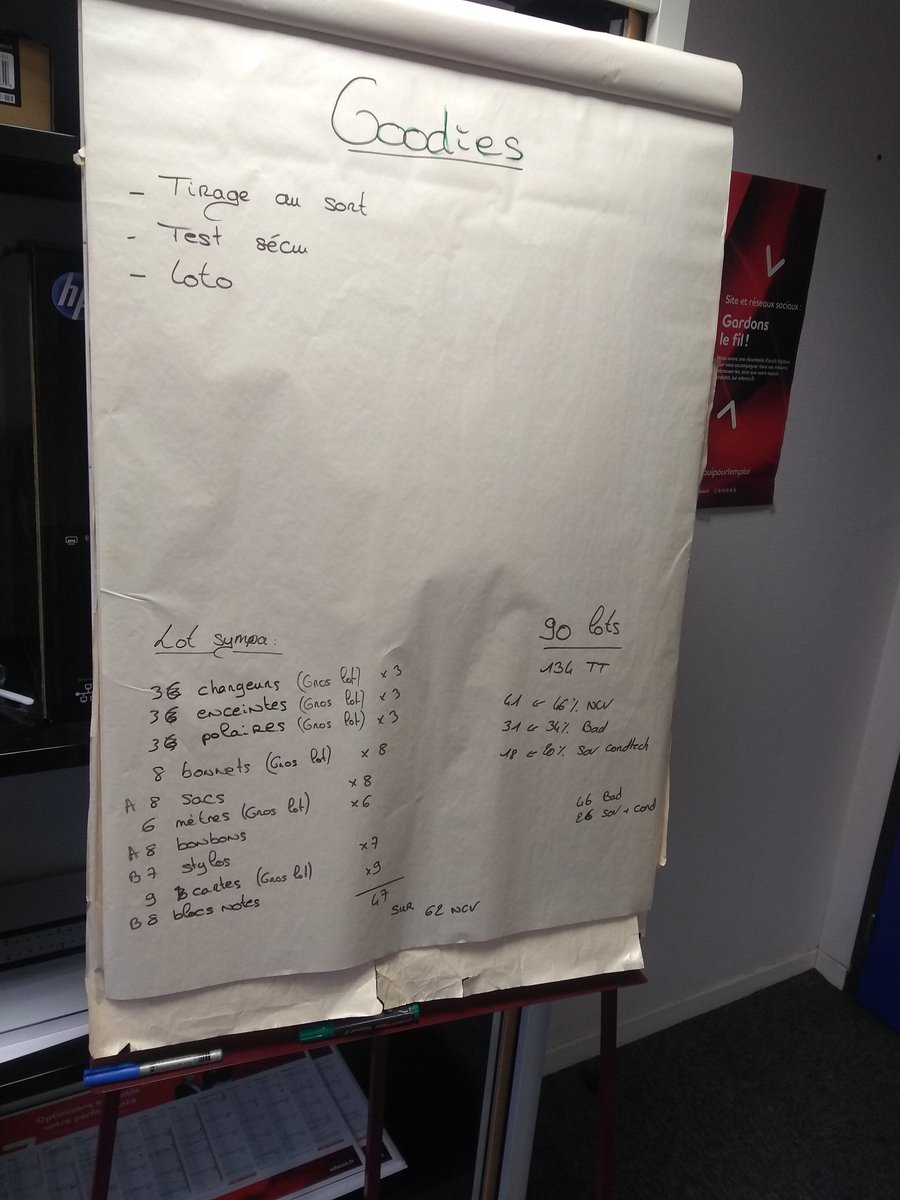 Goodies
- Tirage au sort
- Test sécu
- Loto
hp
Site et réseaux sociaux
Gardons
le fil !
ouipourlemploi
Lot sympa :
3 chargeurs (Gros lot) x 3
3 enceintes (Gros lot) x 3
3 polaires (Gros lot) x 3
8 bonnets (Gros lot) x 8
A 8 sacs x 8
6 mètres (Gros lot) x 6
A 8 bonbons
B 7 stylos x 7
9 cartes (Gros lot) x 9
B 8 blocs notes
47
SUR 62 NCV
90 lots
134 TT
41 46% NCV
31 34% Bad
18 20% Sav condtech
46 Bad
26 Sav + Cond
Optimisons ensemble
votre performance